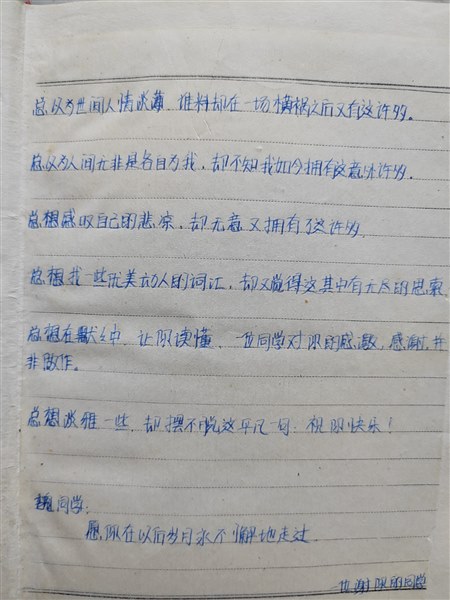 总以为世间人情淡薄，谁料却在一场横祸之后又有这许多。
总以为人间无非是各自为我，却不知我如今拥有这意外许多。
总想感叹自己的悲凉，却无意又拥有了这许多
总想找一些优美动人的词汇，却又觉得这其中有无尽的思索
总想在默默中，让你读懂，一位同学对你的感激，感谢，并
非做作。
总想淡雅一些，却摆不脱这平凡一句：祝你快乐！
同学：
愿你在以后岁月永不懈地走过
一位谢你的同学